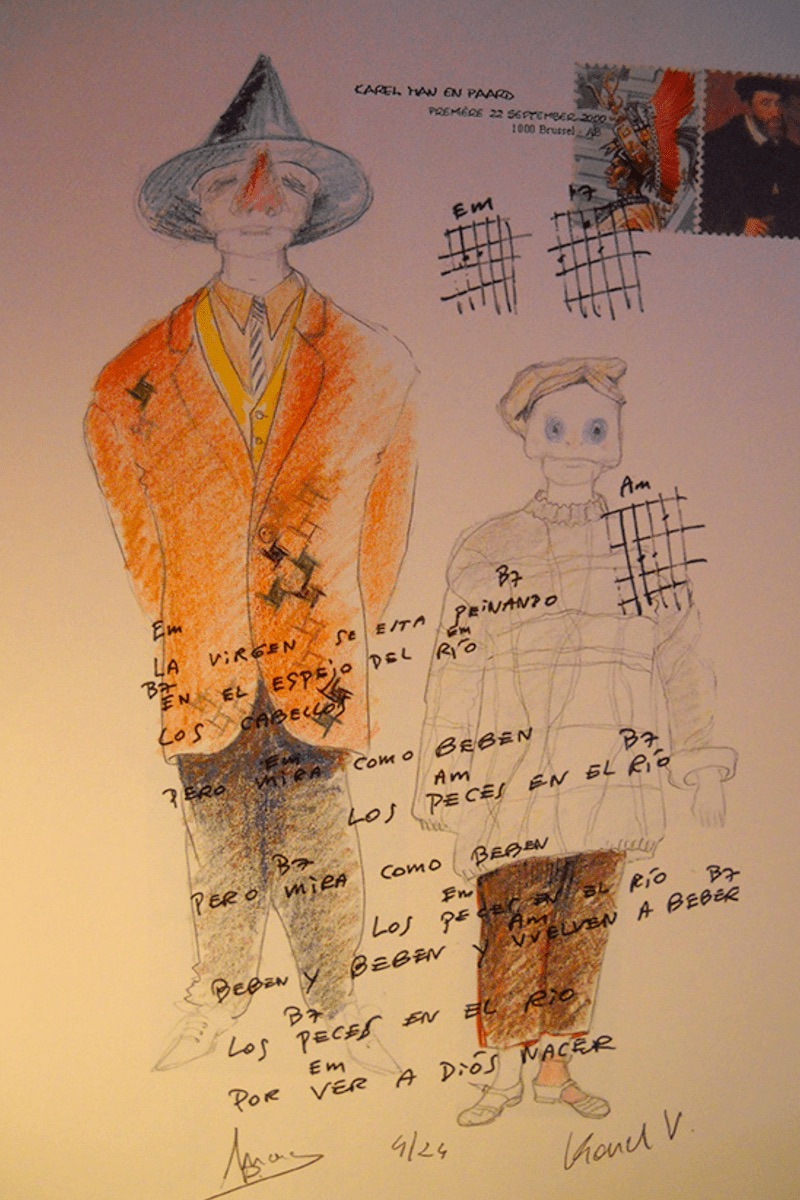 KAREL MAN EN PAARD
PREMIÈRE 22 SEPTEMBER 2000
1000 Brussel - AB
Em
B7
Am
B7
Em
LA VIRGEN SE ESTA PEINANDO
B7
Em
EN EL ESPEJO DEL RÍO
LOS CABELLOS
Em
B7
PERO MIRA COMO BEBEN
Am
LOS PECES EN EL RÍO
B7
PERO MIRA COMO BEBEN
Em
LOS PECES EN EL RÍO
Am
B7
BEBEN Y BEBEN Y VVELVEN A BEBER
B7
LOS PECES EN EL RÍO
Em
POR VER A DIÓS NACER
4/24
Karel V.